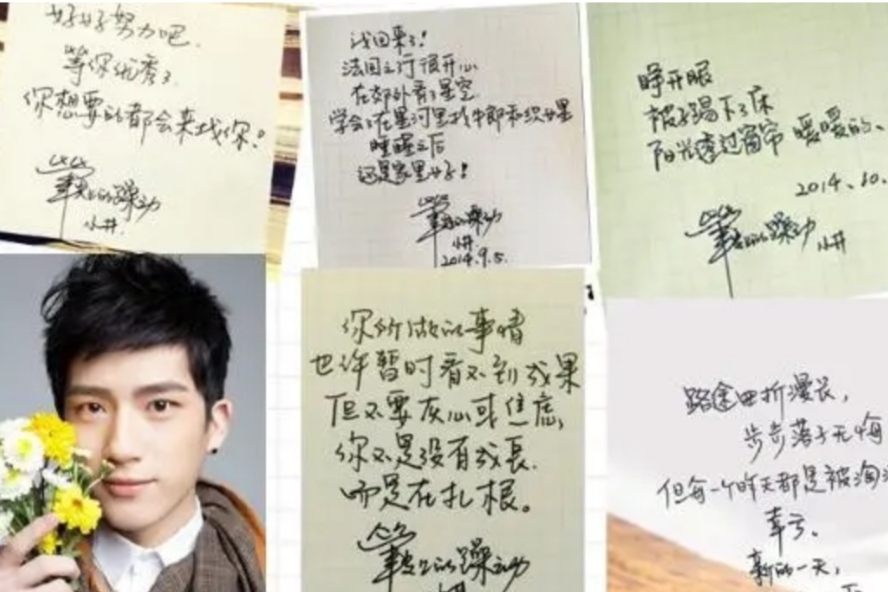 好好努力吧.
等你优秀了
你想要的都会来找你!
笔尖上的躁动
小井
我回来了!
法国之行很开心
在郊外看了星空
学会了在星河里找牛郎和织女星
睡醒之后
还是家里好!
笔尖上的躁动
小井
2014.9.5.
睁开眼
被子踢下了床
阳光透过窗帘 暖暖的、
2014.10.
笔尖上的躁动 小井
你所做的事情
也许暂时看不到成果
但不要灰心或焦虑,
你不是没有成长.
而是在扎根。
笔尖上的躁动
小井
路途曲折漫长,
步步落子无悔
但每一个昨天都是被淘
幸亏、
新的一天,